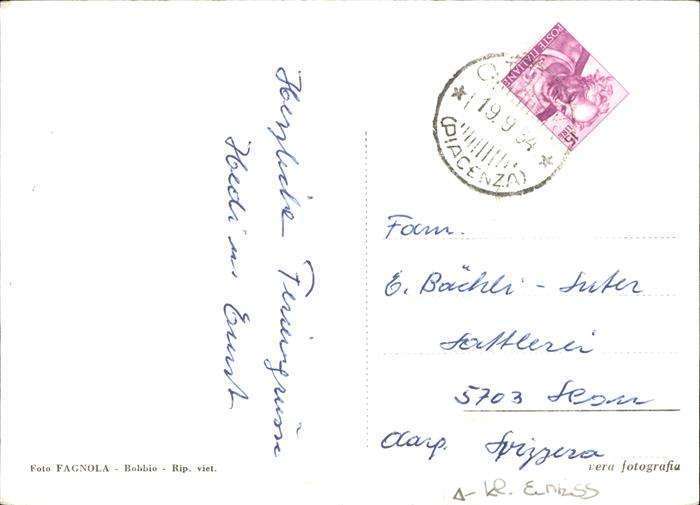 Herzliche Feriengrüsse
Hedi u. Ernst
POSTE ITALIANE
19.9.64
(PIACENZA)
Fam.
E. Bächli - Suter
Sattlerei
5703 Seon
Svizzera
Foto FAGNOLA - Bobbio - Rip. viet.
vera fotografia